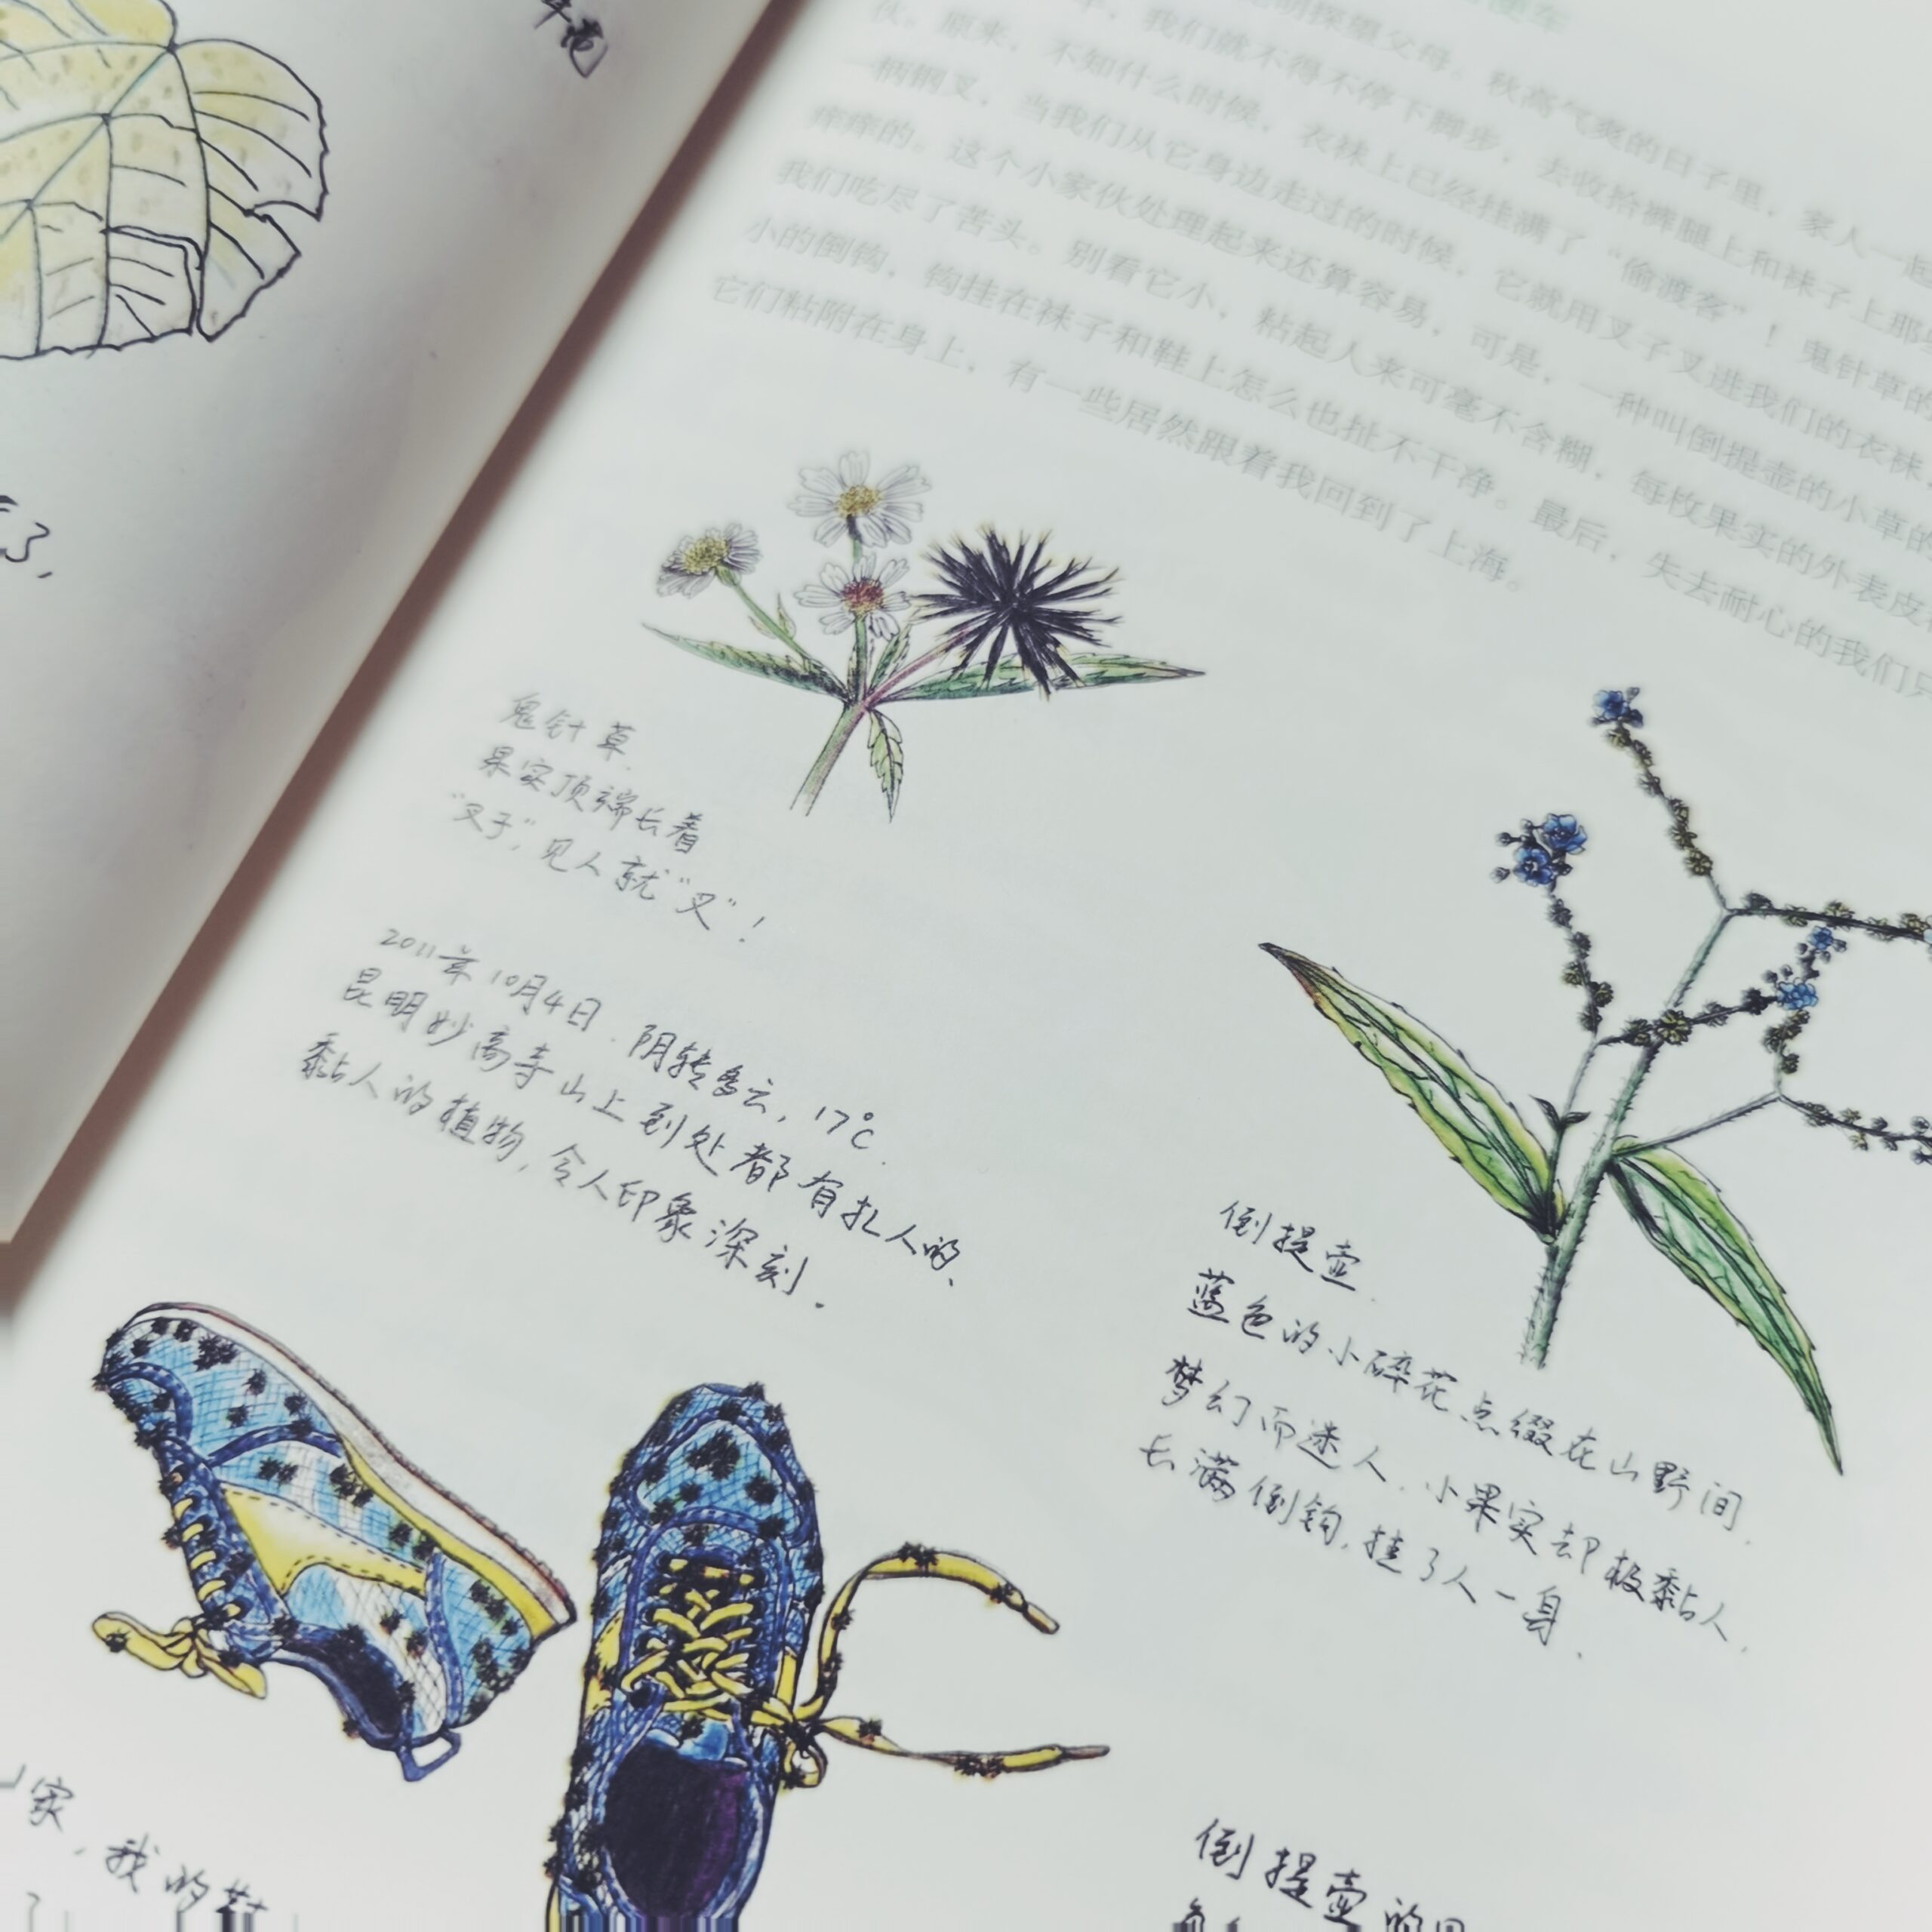 牵
3,
车
明探望父母。秋高气爽的日子里，家人一起
我们就不得不停下脚步，去收拾裤腿上和袜子上那些
伙。原来，不知什么时候，衣袜上已经挂满了“偷渡客”！鬼针草的
一柄钢叉，当我们从它身边走过的时候，它就用叉子叉进我们的衣袜，
痒痒的。这个小家伙处理起来还算容易，可是，一种叫倒提壶的小草的
我们吃尽了苦头。别看它小，粘起人来可毫不含糊，每枚果实的外表皮
小的倒钩，钩挂在袜子和鞋上怎么也扯不干净。最后，失去耐心的我们只
它们粘附在身上，有一些居然跟着我回到了上海。
鬼针草.
果实顶端长着
“叉子”,见人就“叉”!
2011年10月4日.阴转多云,17℃.
昆明妙高寺山上到处都有扎人的、
黏人的植物,令人印象深刻.
倒提壶.
蓝色的小碎花点缀在山野间.
梦幻而迷人.小果实却极黏人.
长满倒钩,挂了人一身.
家,我的鞋
倒提壶的